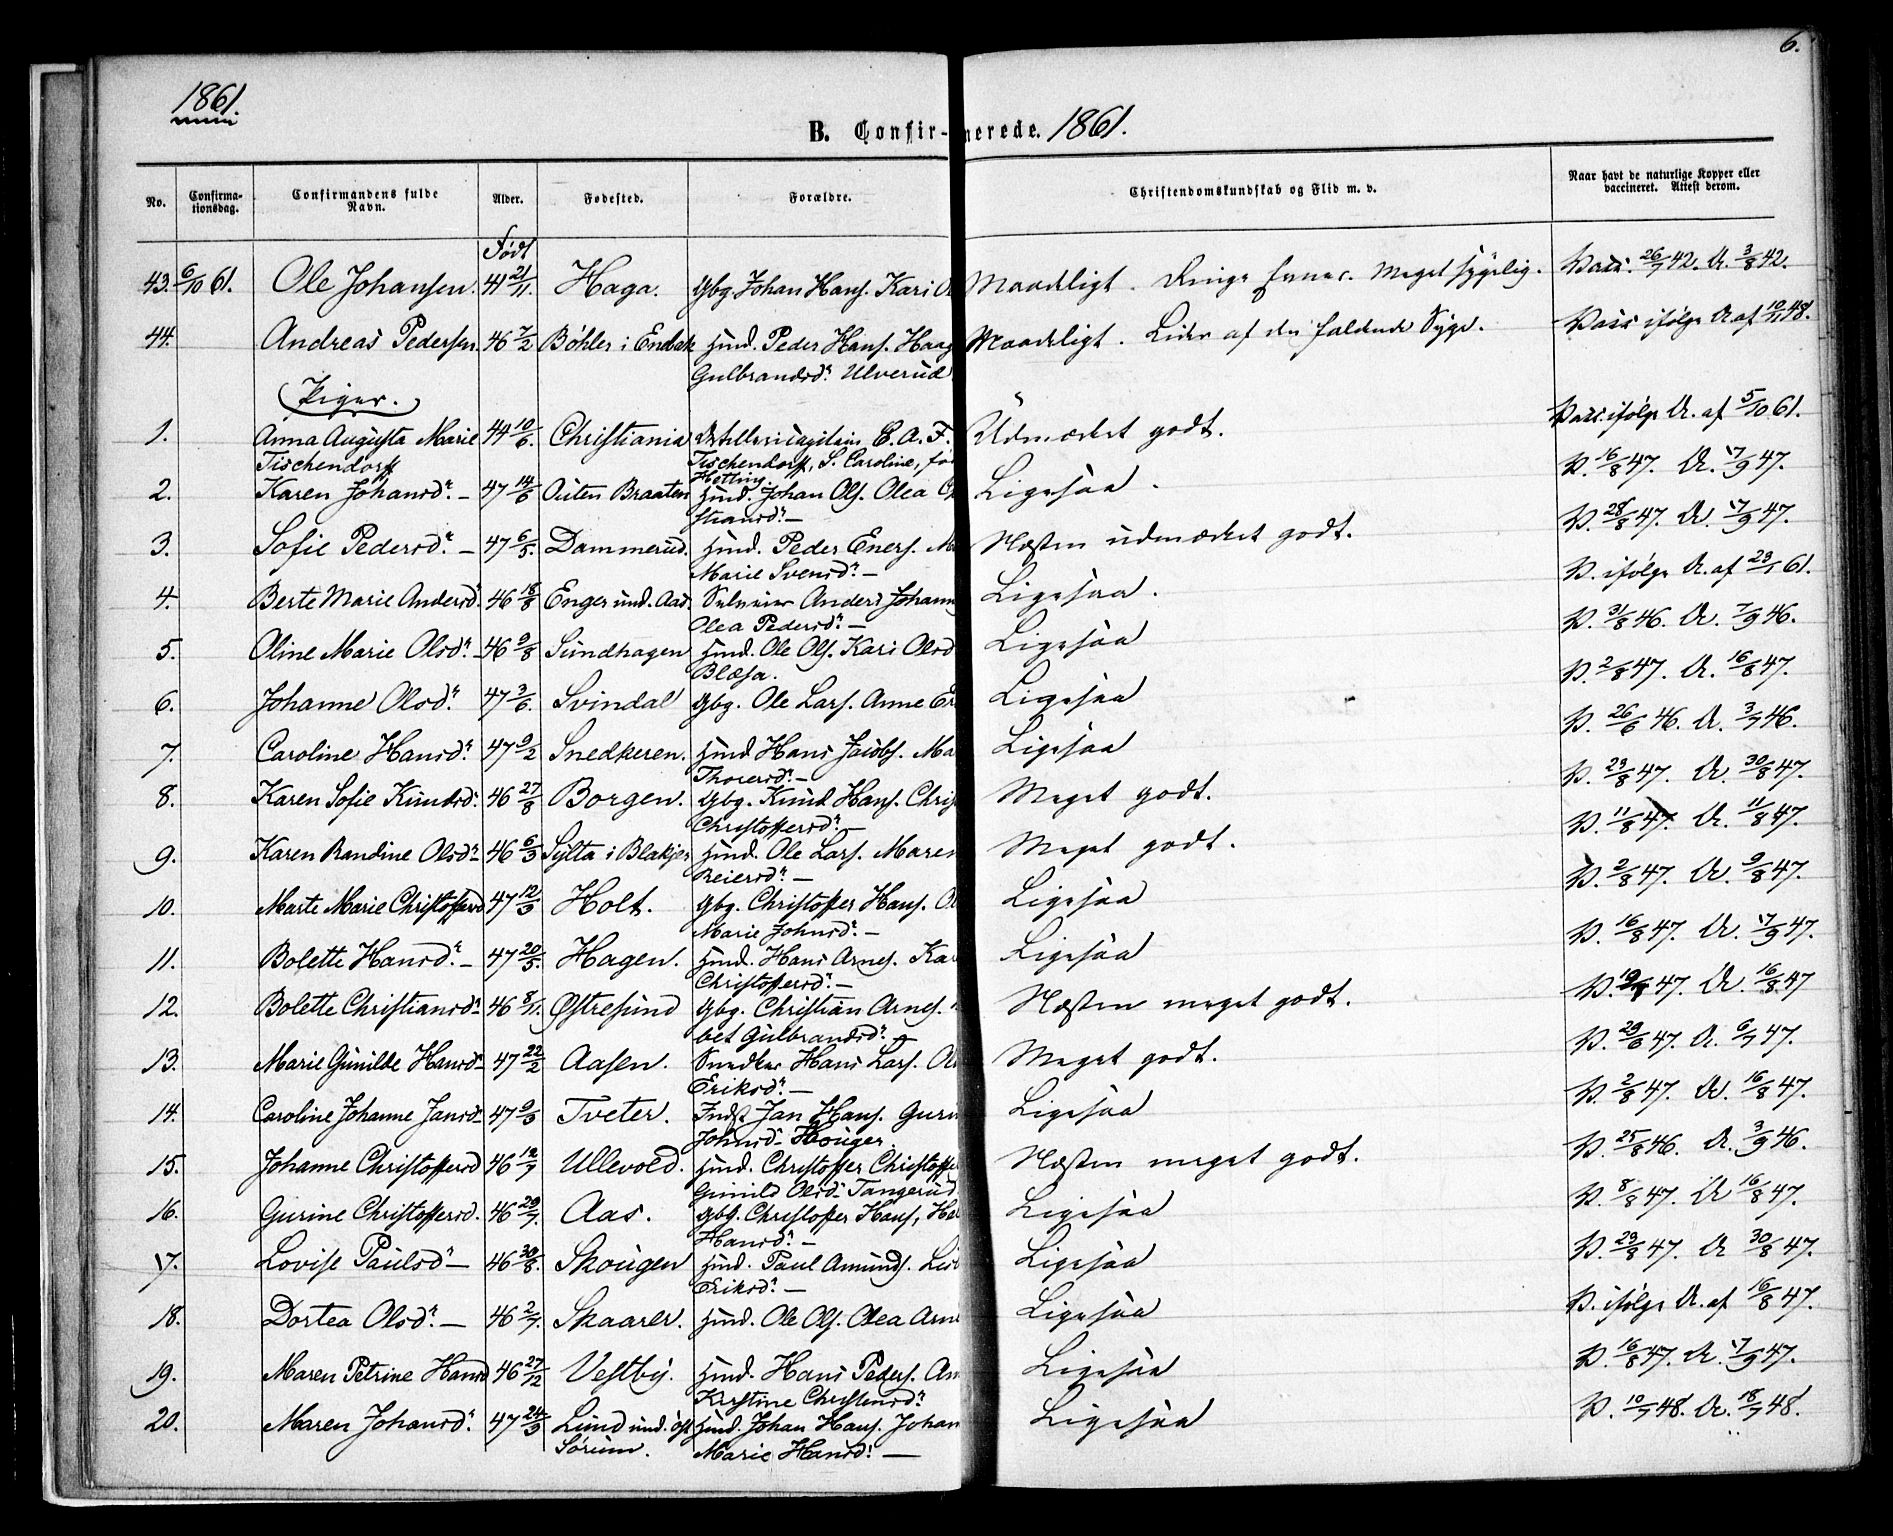 6.
1861.
B. Confir- merede. 1861.
No. Confirma-tionsdag. Confirmandens fulde Navn. Alder. Fødested. Forældre. Christendomskundskab og Flid m. v. Naar havt de naturlige Kopper eller vaccineret. Attest derom.
Født
43. 6/10 61. Ole Johansen. 41 21/11. Haga. Gbg. Johan Hans. Kari Maadeligt. Ringe Evner. Meget sygelig. Vacc. 26/7 42. A. 3/8 42.
44. Andreas Pedersen 46 7/2 Böhler i Enebak Huusm. Peder Hans. Haag Maadeligt. Lider af den faldende Syge. Vacc. ifølge A. af 10/1 48.
Gulbrandsd. Ulverud
Piger.
1. Anna Augusta Marie 44 10/6. Christiania C. A. F. Udmærket godt. Vacc. ifølge A. af 5/10 61.
Tischendorff Tischendorff, S. Caroline, fø
Hetting.
2. Karen Johansd. 47 14/6 Outen Braaten Huusm. Johan Ols. Olea Ligesaa. V. 16/8 47. A. 7/9 47.
3. Sofie Pedersd. 47 6/5. Dammerud. Huusm. Peder Eners. Næsten udmærket godt. V. 28/8 47. A. 7/9 47.
Marie Svensd.
4. Berte Marie Andersd. 46 18/8 Enger und. Aad. Anders Johann Ligesaa. V. ifølge A. af 23/1 61.
Olea Pedersd.
5. Oline Marie Olsd. 46 9/8 Sundhagen Huusm. Ole Ols. Kari Olsd Ligesaa V. 31/8 46. A. 7/9 46.
Blæsa.
6. Johanne Olsd. 47 3/6. Svindal Gbg. Ole Lars. Anne Er Ligesaa V. 2/8 47. A. 16/8 47.
7. Caroline Hansd. 47 9/2 Snedkeren. Huusm. Hans Jacobs. Ma Ligesaa V. 26/6 46. A. 3/7 46.
Thoresd.
8. Karen Sofie Knudsd. 46 27/8 Borgen. Gbg. Knud Hans. Chris Meget godt. V. 23/8 47. A. 30/8 47.
Christoffersd.
9. Karen Randine Olsd. 46 6/3 Sylta i Blakjer Huusm. Ole Lars. Maren Meget godt. V. 11/8 47. A. 11/8 47.
Reiersd.
10. Marte Marie Christoffersd 47 12/3 Holt. Gbg. Christoffer Hans. Ligesaa V. 2/8 47. A. 9/8 47.
Marie Johnsd.
11. Bolette Hansd. 47 20/5. Hagen. Huusm. Hans Arnes. Ka Ligesaa V. 16/8 47. A. 7/9 47.
Christoffersd.
12. Bolette Christiansd. 46 8/11. Østresund Gbg. Christian Arnes. Næsten meget godt. V. 47. A. 16/8 47
bet Gulbrandsd.
13. Marie Gunilde Hansd. 47 22/2 Aasen. Snedker Hans Lars. Meget godt. V. 29/6 47. A. 6/7 47.
Eriksd.
14. Caroline Johanne Jansd. 47 9/3 Tveter. Indst. Jan Hans. Guru Ligesaa V. 2/8 47. A. 16/8 47.
Johnsd. Houger.
15. Johanne Christoffersd 46 12/7 Ullevold. Huusm. Christoffer Christoffe Næsten meget godt. V. 25/8 46. A. 3/9 46.
Gunild Olsd. Tangerud
16. Gurine Christoffersd. 46 29/7. Aas. Gbg. Christoffer Hans. Ha Ligesaa V. 8/8 47. A 16/8 47.
Hansd.
17. Lovise Paulsd. 46 30/8. Skougen Huusm. Paul Amunds. Ligesaa V. 23/8 47. A 30/8 47.
Eriksd.
18. Dortea Olsd. 46 2/7. Skaarer. Huusm. Ole Ols. Olea Arne Ligesaa V. ifølge A. af 16/8 47.
19. Maren Petrine Hansd 46 27/12 Vestby. Huusm. Hans Peders. An Ligesaa V. 16/8 47. A. 7/9 47.
Kristine Christensd.
20. Maren Johansd. 47 24/3 Lund und. öst Huusm. Johan Hans. Johan Ligesaa V. 10/7 48. A. 18/7 48.
Sørum. Marie Hansd.